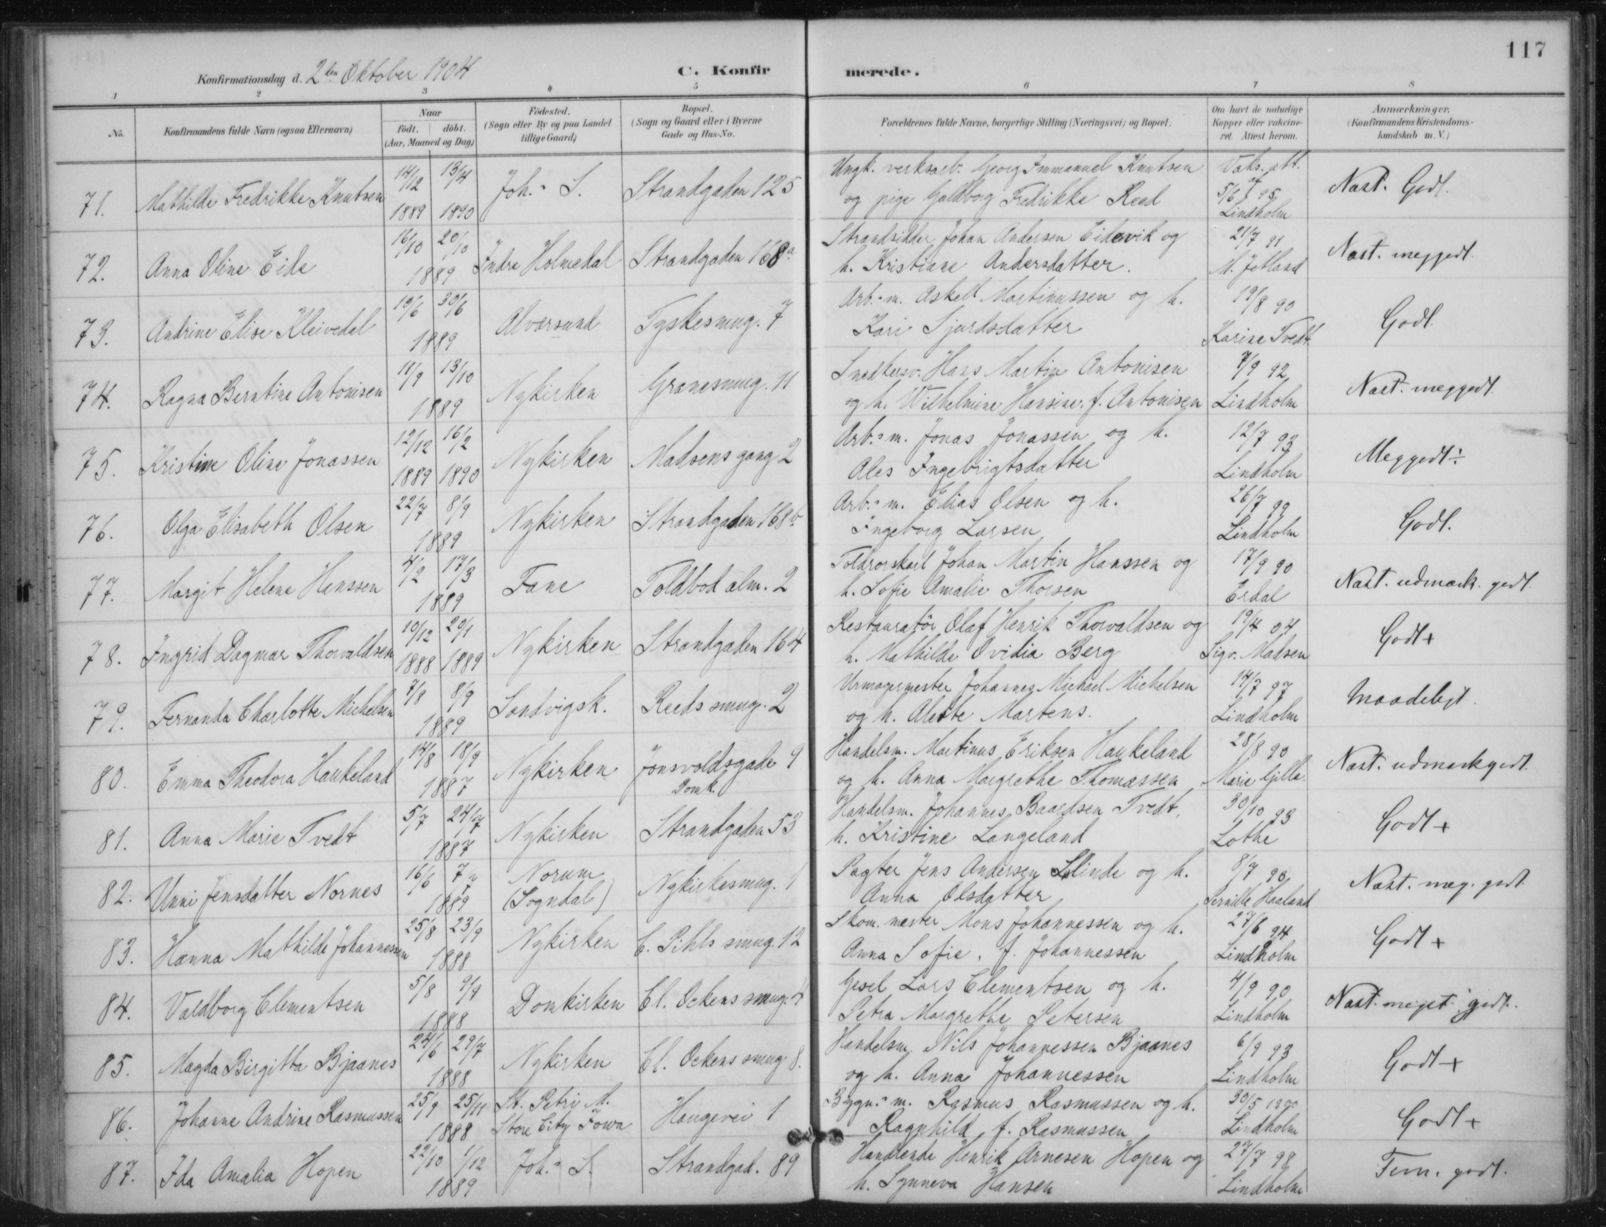 117
Konfirmationsdag d. 2den Oktober 1904 C. Konfirmerede.
1 2 3 4 5 6 7 8
No. Konfirmandens fulde Navn (ogsaa Efternavn) Naar født. døbt. (Aar, Maaned og Dag) Fødested. (Sogn eller By og paa Landet tillige Gaard) Bopæl. (Sogn og Gaard eller i Byerne Gade og Hus-No. Forældrenes fulde Navne, borgerlige Stilling (Næringsvei) og Bopæl. Om havt de naturlige Kopper eller vaccineret Attest herom. Anmærkninger. (Konfirmandens Kristendomskundskab m. V.)
71. Mathilde Fredrikke Knutsen 14/12 1889 13/4 1890 Joh.s S. Strandgaden 125 Ungk. verksarb. Georg Immanuel Knutsen og pige Goldborg Fredrikke Reed Vaks. att. 5/6 95 Lindholm Nast. Godt.
72. Anna Oline Eide 16/10 20/10 1889 Indre Holmedal Strandgaden 168a Strandsidder Johan Andersen Eidevik og h. Kristiane Andersdatter. 21/7 91 M. Jetland Nast. meggodt.
73. Andrine Elise Kleivedal 19/6 30/6 1889 Alversund Tyskesmug. 7 Arb.-m. Askell Martinussen og h. Kari Sjurdsdatter 19/8 90 Karine Tvedt Godt.
74. Ragna Berntine Antonisen 11/9 13/10 1889 Nykirken Granesmug. 11 Snedkersv. Hans Martin Antonisen og h. Wilhelmine Hansine f. Antonisen 7/9 92 Lindholm Nast. meggodt.
75. Kristine Oline Jonassen 12/12 1889 16/2 1890 Nykirken Madsens gang 2 Arb.-m. Jonas Jonassen og h. Ales Ingebrigtsdatter 12/7 93 Lindholm Meggodt÷
76. Olga Elisabeth Olsen 22/7 8/9 1889 Nykirken Strandgaden 168b Arb.-m. Elias Olsen og h. Ingeborg Larsen 26/7 99 Lindholm Godt.
77. Margit Helene Hanssen 4/2 17/3 1889 Fane Toldbod alm. 2 Toldroerskarl Johan Martin Hanssen og h. Sofie Amalie Thorsen 17/9 90 Erdal Nast. udmærk. godt
78. Ingrid Dagmar Thorvaldsen 19/12 1888 29/1 1889 Nykirken Strandgaden 164 Restauratør Olaf Henrik Thorvaldsen og h. Mathilde Ovidia Berg 19/4 04 Sigv. Madsen Godt+
79. Fernanda Charlotte Michelsen 7/8 8/9 1889 Sandvigsk. Reeds smug. 2 Urmagermester Johannes Michael Michelsen og h. Alette Martens. 14/7 97 Lindholm Maadeligt.
80. Emma Theodora Haukeland 14/8 18/9 1887 Nykirken Jonsvoldsgade 9 Handelsm. Martinus Eriksen Haukeland og h. Anna Margrethe Thomassen 28/8 90 Marie Gille Nast. udmærkgodt.
81. Anna Marie Tvedt 5/7 24/7 1887 Nykirken Domk. Strandgaden 53 Handelsm. Johannes Baardsen Tvedt, h. Kristine Langeland 30/10 93 Lothe Godt+
82. Unni Jensdatter Nornes 16/6 7/7 1889 Norum (Sogndal) Nykirkesmug. 1 Pagter Jens Andersen Slinde og h. Anna Olsdatter 8/7 90 Pernille Haaland Nast. meg. godt.
83. Hanna Mathilde Johannessen 25/8 23/9 1888 Nykirken C. Pihls smug. 12 Skom. mester Mons Johannessen og h. Anna Sofie. f. Johannessen 27/6 94 Lindholm Godt+
84. Valdborg Clementsen 5/8 9/9 1888 Domkirken Cl. Ockens smug. 4 Gesel Lars Clementsen og h. Petra Margrethe Petersen 4/9 90 Lindholm Nast. meget godt.
85. Magda Birgitta Bjaanes 24/6 29/7 1888 Nykirken Cl. Ockens smug 8. Handelsm. Nils Johannessen Bjaanes og h. Anna Johannessen 6/9 93 Lindholm Godt+
86. Johanne Andrine Rasmussen 25/9 25/11 1888 St. Petri M. Stou City Iowa Haugevei 1 Bygn.-m. Rasmus Rasmussen og h. Ragnhild f. Rasmussen 30/5 1890 Lindholm Godt+
87. Ida Amalia Hopen 22/10 1/12 1889 Joh.s S. Strandgad. 89 Handlende Henrik Arnesen Hopen og h. Synneva Hansen 27/7 98 Lindholm Tem. godt.